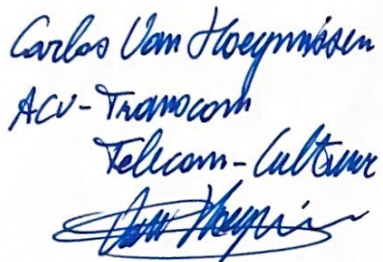 Carlos Van Hoeymissen
ACV-Transcom
Telecom-Cultuur